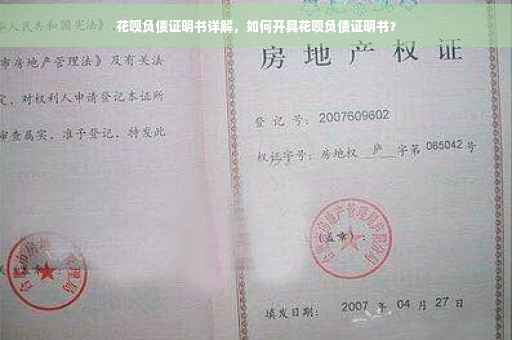 花呗负债证明书详解，如何开具花呗负债证明书？
人民共和国宪法》
市房地产管理法》及有关法
定，对权利人申请登记本证所
审查属实，准予登记，特发此
房地产权证
登记号：2007609602
权证字号：房地权 庐 字第 085042 号
(盖章)：
填发日期： 2007 年 04 月 27 日